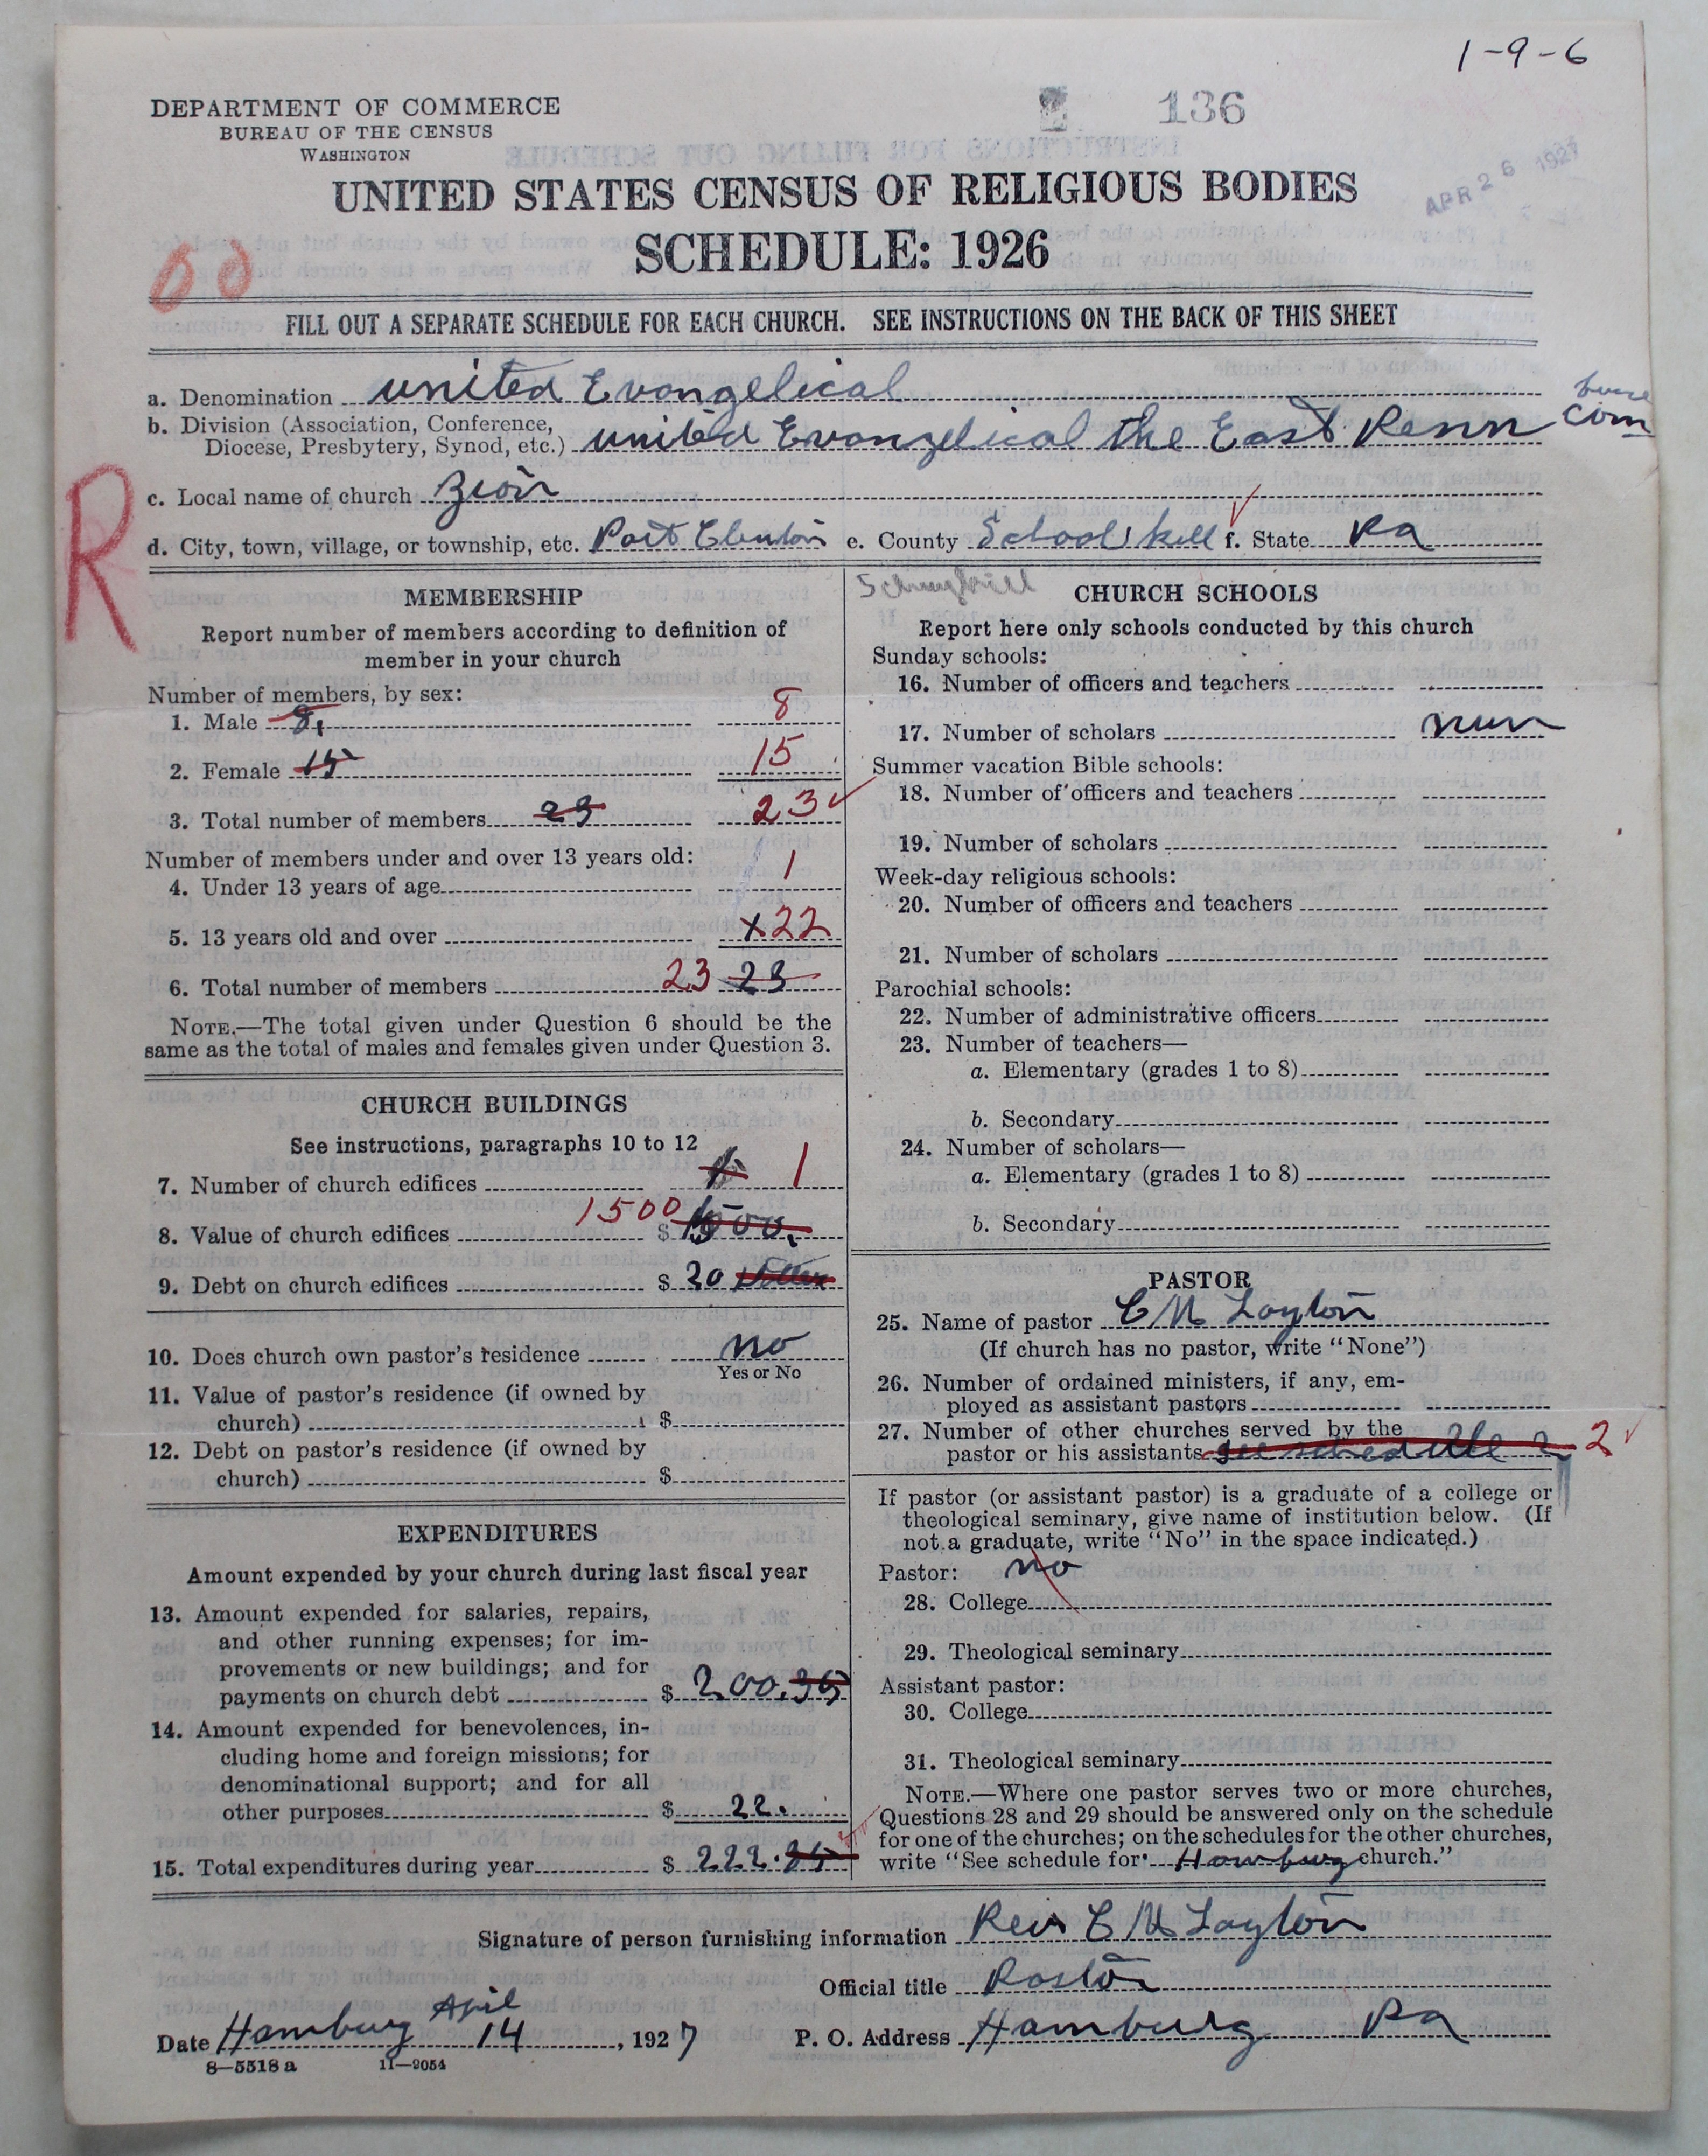 1-9-6
136
DEPARTMENT OF COMMERCE
BUREAU OF THE CENSUS
WASHINGTON
APR 26 1927
UNITED STATES CENSUS OF RELIGIOUS BODIES
SCHEDULE: 1926
FILL OUT A SEPARATE SCHEDULE FOR EACH CHURCH. SEE INSTRUCTIONS ON THE BACK OF THIS SHEET
a. Denomination united Evangelical
b. Division (Association, Conference,
Diocese, Presbytery, Synod, etc.) united Evangelical the East Penn Com
R
c. Local name of church Zion
d. City, town, village, or township, etc. Port Clinton e. County School kill f. State Pa
Schuylkill
MEMBERSHIP
Report number of members according to definition of
member in your church
Number of members, by sex:
1. Male 8, 8
2. Female 15 15
3. Total number of members 23 23
Number of members under and over 13 years old:
4. Under 13 years of age 1
5. 13 years old and over x22
6. Total number of members 23 23
NOTE.—The total given under Question 6 should be the
same as the total of males and females given under Question 3.
CHURCH BUILDINGS
See instructions, paragraphs 10 to 12
7. Number of church edifices 1
8. Value of church edifices 1500 $ 1500.
9. Debt on church edifices $ 20
10. Does church own pastor's residence no
Yes or No
11. Value of pastor's residence (if owned by
church) $
12. Debt on pastor's residence (if owned by
church) $
EXPENDITURES
Amount expended by your church during last fiscal year
13. Amount expended for salaries, repairs,
and other running expenses; for im-
provements or new buildings; and for
payments on church debt $ 200.35
14. Amount expended for benevolences, in-
cluding home and foreign missions; for
denominational support; and for all
other purposes $ 22.
15. Total expenditures during year $ 222.35
CHURCH SCHOOLS
Report here only schools conducted by this church
Sunday schools:
16. Number of officers and teachers
17. Number of scholars nun
Summer vacation Bible schools:
18. Number of officers and teachers
19. Number of scholars
Week-day religious schools:
20. Number of officers and teachers
21. Number of scholars
Parochial schools:
22. Number of administrative officers
23. Number of teachers—
a. Elementary (grades 1 to 8)
b. Secondary
24. Number of scholars—
a. Elementary (grades 1 to 8)
b. Secondary
PASTOR
25. Name of pastor C M Layton
(If church has no pastor, write "None")
26. Number of ordained ministers, if any, em-
ployed as assistant pastors
27. Number of other churches served by the
pastor or his assistants see schedule 2 2
If pastor (or assistant pastor) is a graduate of a college or
theological seminary, give name of institution below. (If
not a graduate, write "No" in the space indicated.)
Pastor: no
28. College
29. Theological seminary
Assistant pastor:
30. College
31. Theological seminary
NOTE.—Where one pastor serves two or more churches,
Questions 28 and 29 should be answered only on the schedule
for one of the churches; on the schedules for the other churches,
write "See schedule for Hamburg church."
Signature of person furnishing information Rev C M Layton
Official title Pastor
Date Hamburg April 14, 1927 P. O. Address Hamburg Pa
8—5518 a 11—9054